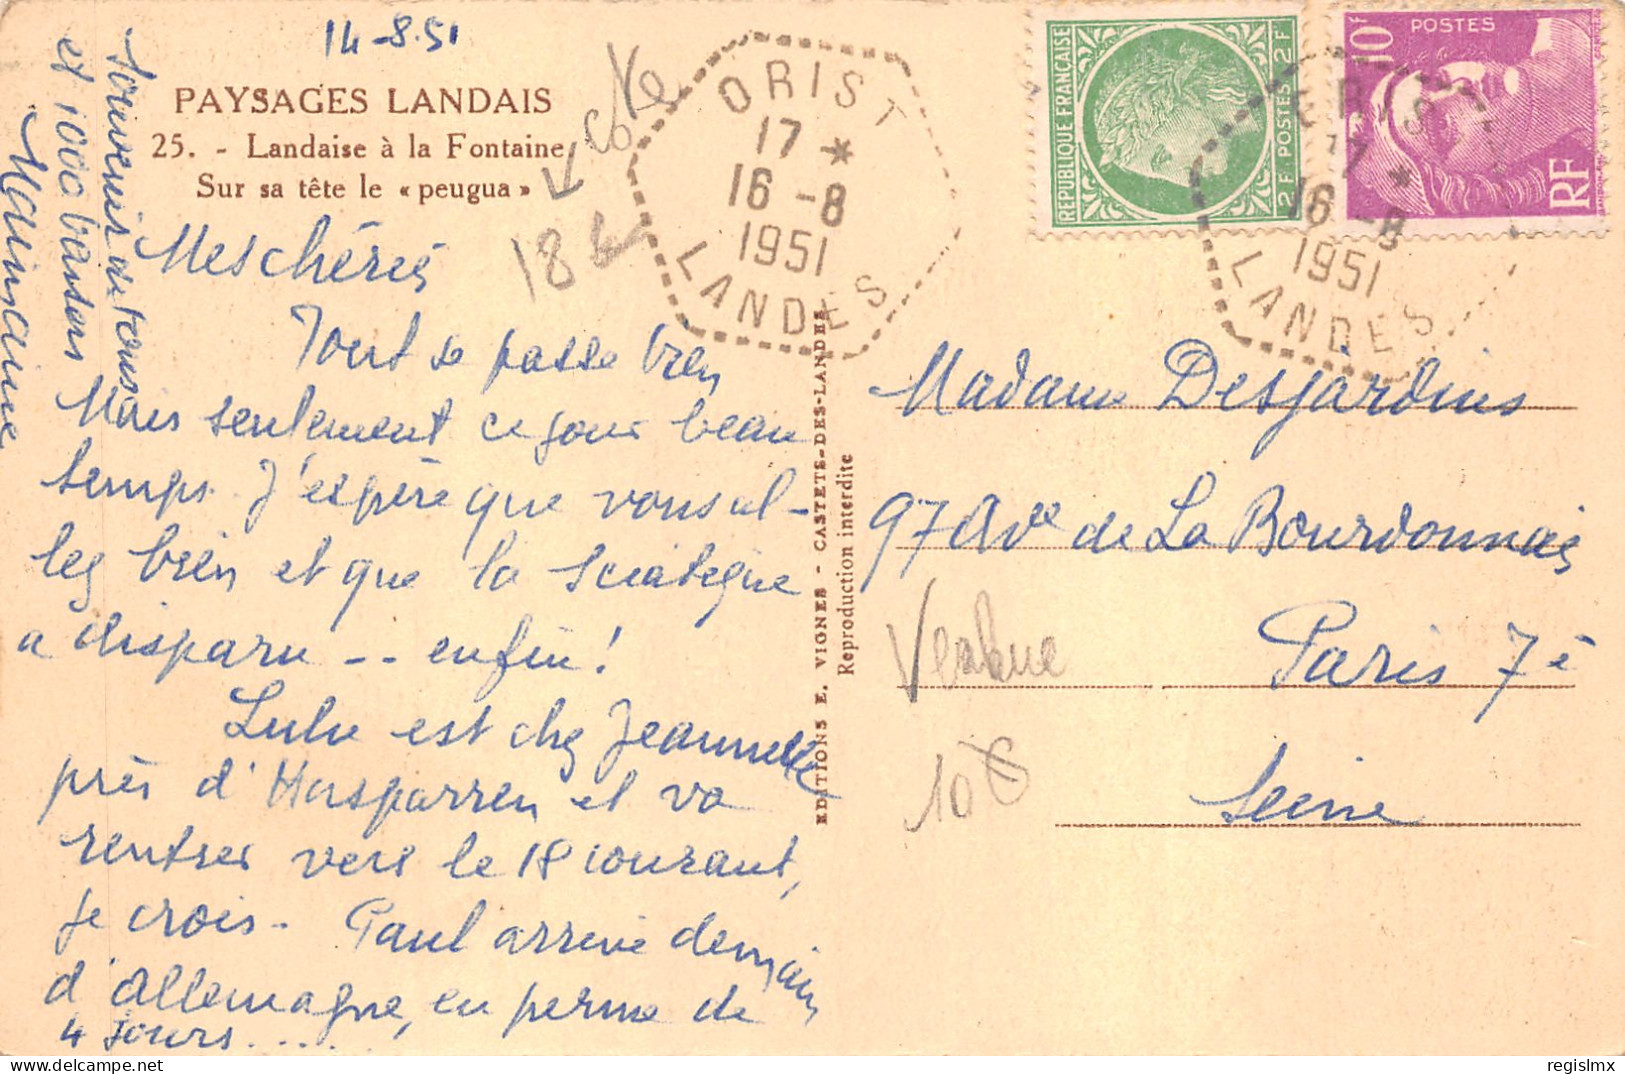 14-8.51
PAYSAGES LANDAIS
25. - Landaise à la Fontaine
Sur sa tête le « peugua »
Mes chéries
Tout se passe bien
Mais seulement ce jour beau
temps. J'espère que vous al-
lez bien et que la sciatique
a disparu -- enfin !
Lulu est chez Jeannette
près d'Hasparren et va
rentrer vers le 18 courant,
je crois. Paul arrive demain
d'Allemagne, en perme de
4 jours.....
Souvenir de tous
et 1000 baisers
cote
18 €
ORIST
17 *
16 -8
1951
LANDES
RÉPUBLIQUE FRANÇAISE
2F POSTES 2F
10F
POSTES
RF
ORIST
17 *
16 -8
1951
LANDES
EDITIONS E. VIGNES - CASTETS-DES-LANDES
Reproduction interdite
Madame Desjardins
97 Ave de La Bourdonnais
Paris 7è
Seine
10 €
delcampe.net
regislmx